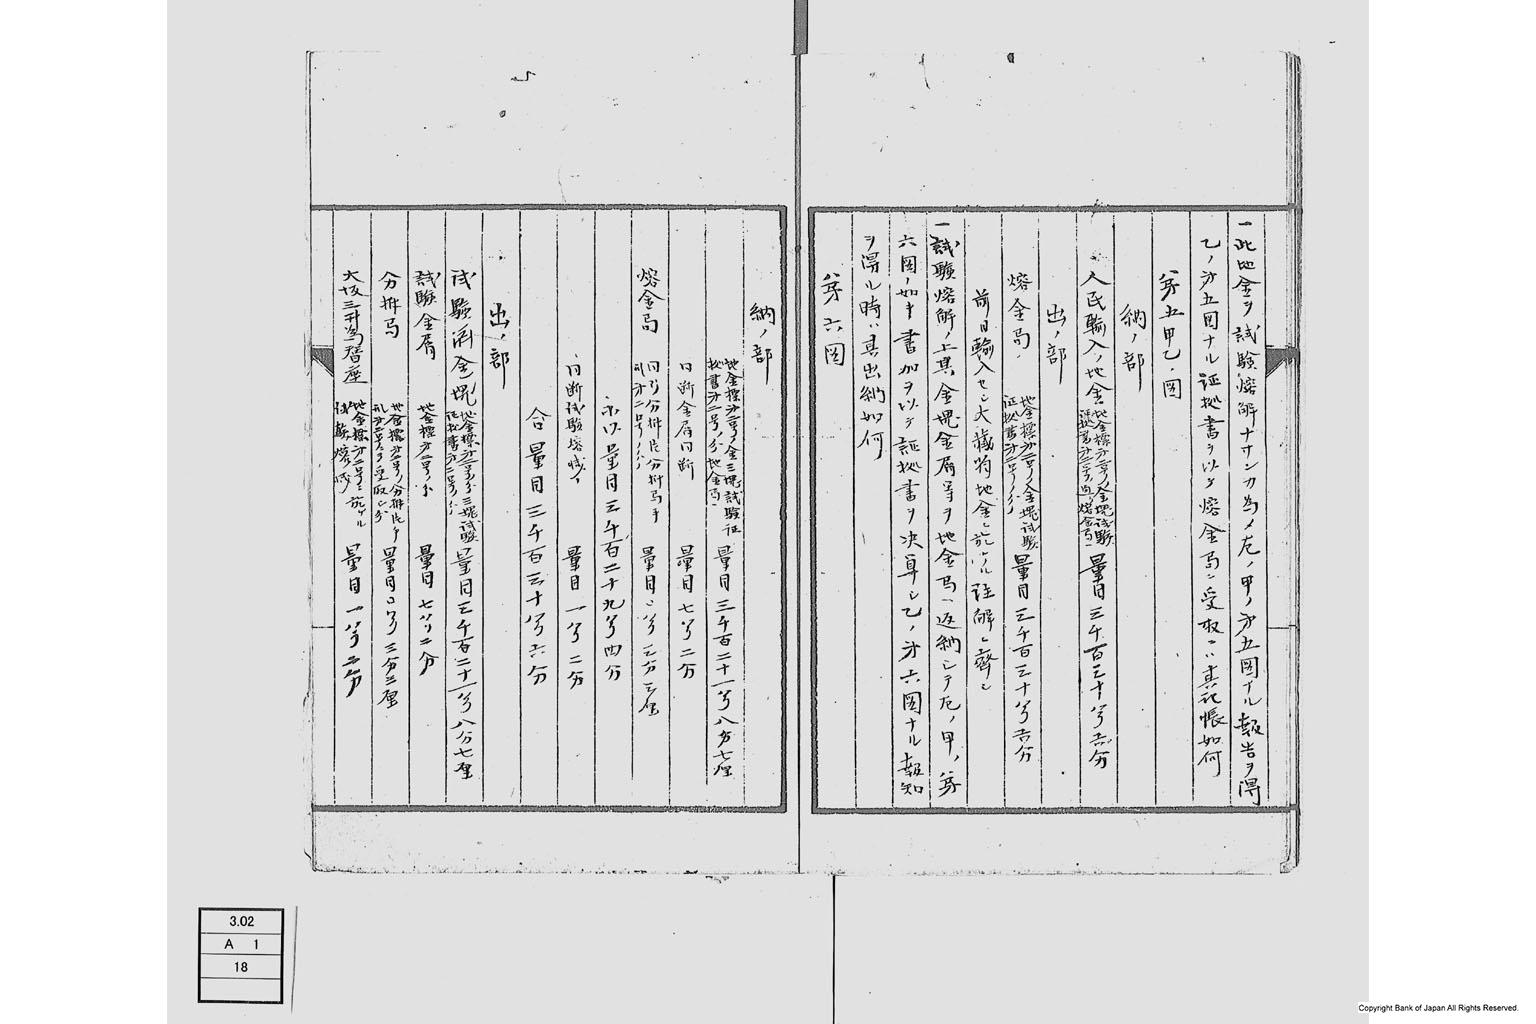 一此地金ヲ試験熔解ナサンカ為メ左ノ甲ノ第五図ナル報告ヲ得
乙ノ第五図ナル証拠書ヲ以テ熔金局ニ受取ニハ其記帳如何
第五甲乙ノ図
納ノ部
人民輸入ノ地金 地金標第二号ノ金塊試験 量目三千百三十八匁六分
出ノ部
熔金局 地金標第二号ノ金塊試験
証拠書第二号ノ分 量目三千百三十八匁六分
前日輸入セシ大蔵省地金ニ於ケル註解ニ齊シ
一試験熔解ノ上其金塊金屑等ヲ地金局ヘ返納シテ左ノ甲ノ第
六図ノ如キ書加ヲ以テ証拠書ヲ決算シ乙ノ第六図ナル報知
ヲ得ル時ハ其出納如何
第六図
納ノ部
地金標第二号ノ金三塊試験証
拠書第二号ノ分地金局ヘ 量目三千百二十一匁八分七厘
同断金屑同断 量目七匁二分
熔金局 同所分析片分析局ヘ 量目 匁三分三厘
小以量目三千百二十九匁四分
同断試験熔減 量目一匁二分
合量目三千百三十八匁六分
出ノ部
試験済金塊 地金標第二号ノ分三塊試験
証拠書第二号ノ分 量目三千百二十一匁八分七厘
試験金屑 地金標第二号ノ分 量目七匁二分
分析局 地金標第二号ノ分析片 量目 匁三分三厘
大坂三井為替座 地金標第二号ニ於ケル
試験熔減 量目一匁二分
3.02
A 1
18
Copyright Bank of Japan All Rights Reserved.